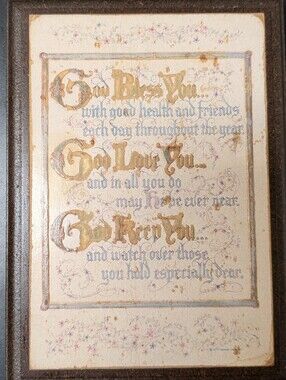 God Bless You...
with good health and friends
each day throughout the year.
God Love You...
and in all you do
may He be ever near.
God Keep You...
and watch over those
you hold especially dear.